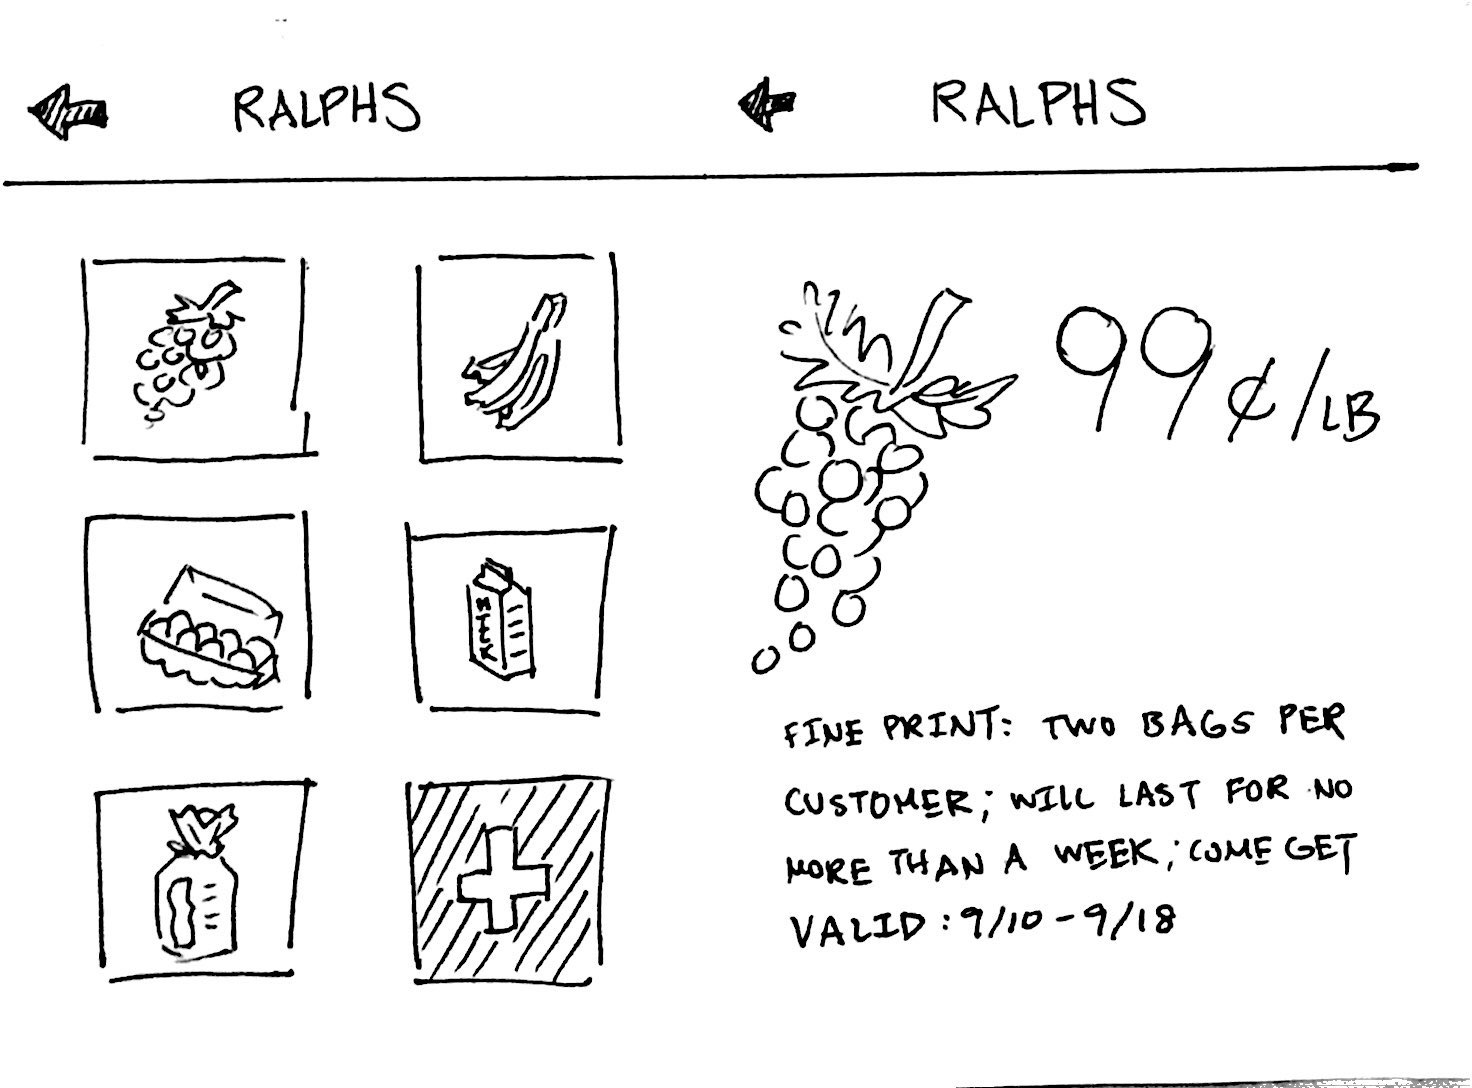 RALPHS
MILK
RALPHS
99¢/LB
FINE PRINT: TWO BAGS PER
CUSTOMER; WILL LAST FOR NO
MORE THAN A WEEK; COME GET
VALID: 9/10-9/18